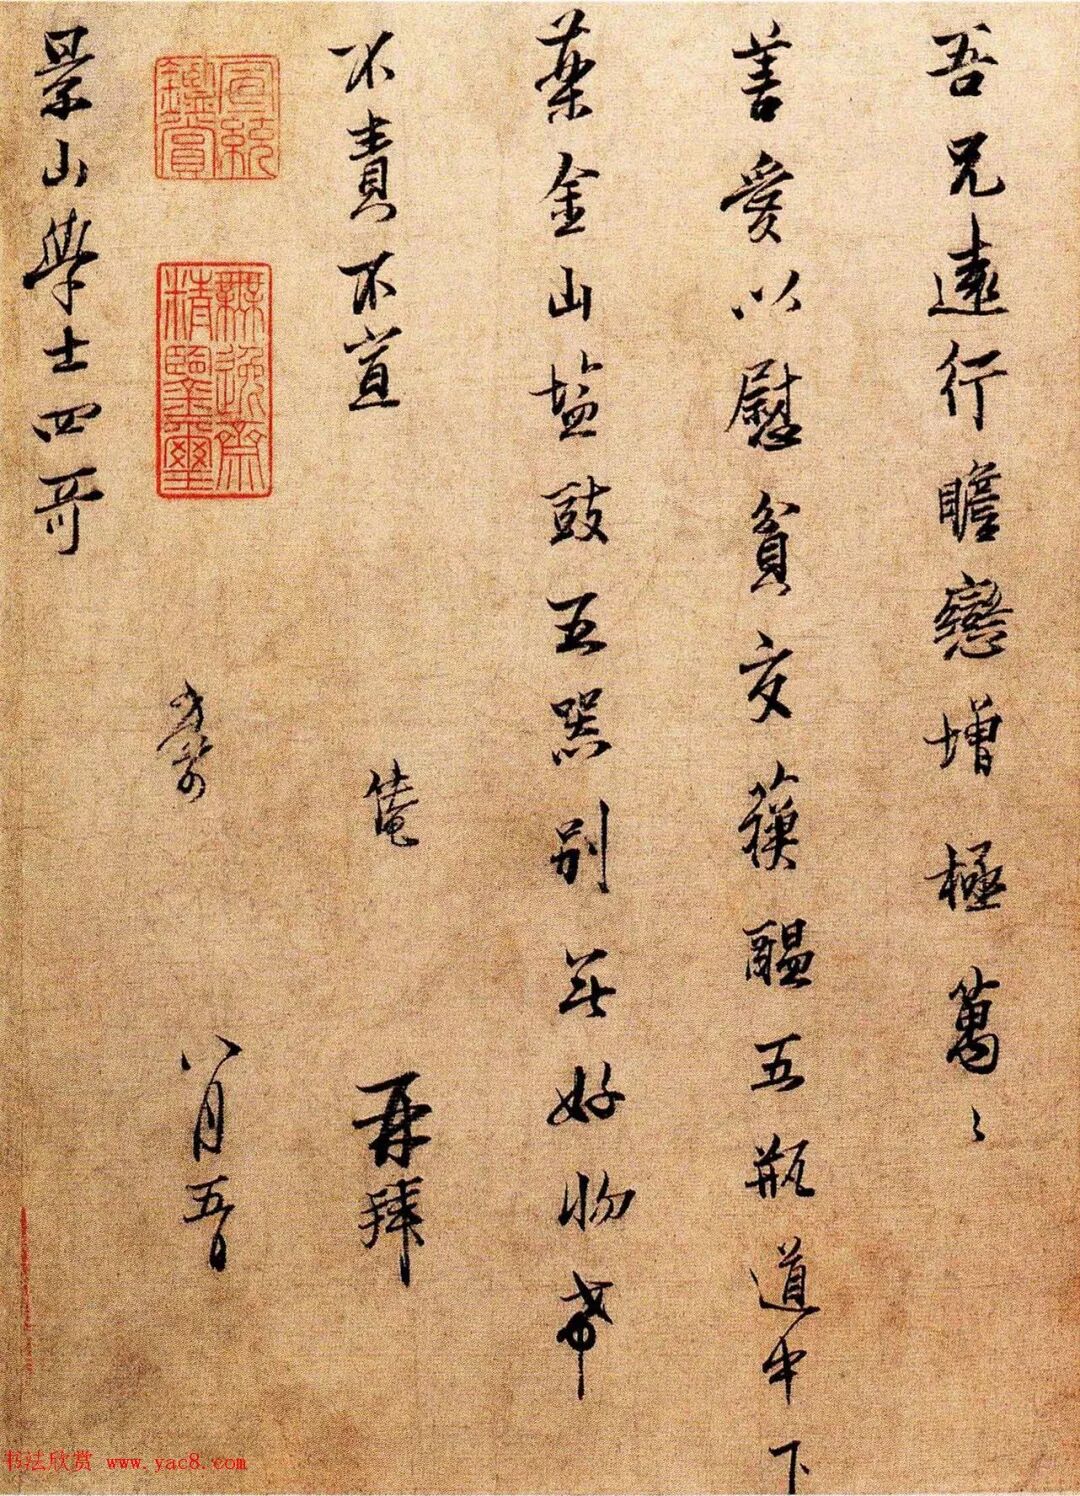 吾兄遠行瞻戀增極萬〻
善愛以慰貧交蘓醞五瓶道中下
藥金山塩豉五器别無好物希
不責不宣
再拜
景山學士四哥
八月五日
宣統鑑賞
無逸齋精鑒璽
书法欣赏 www.yac8.com